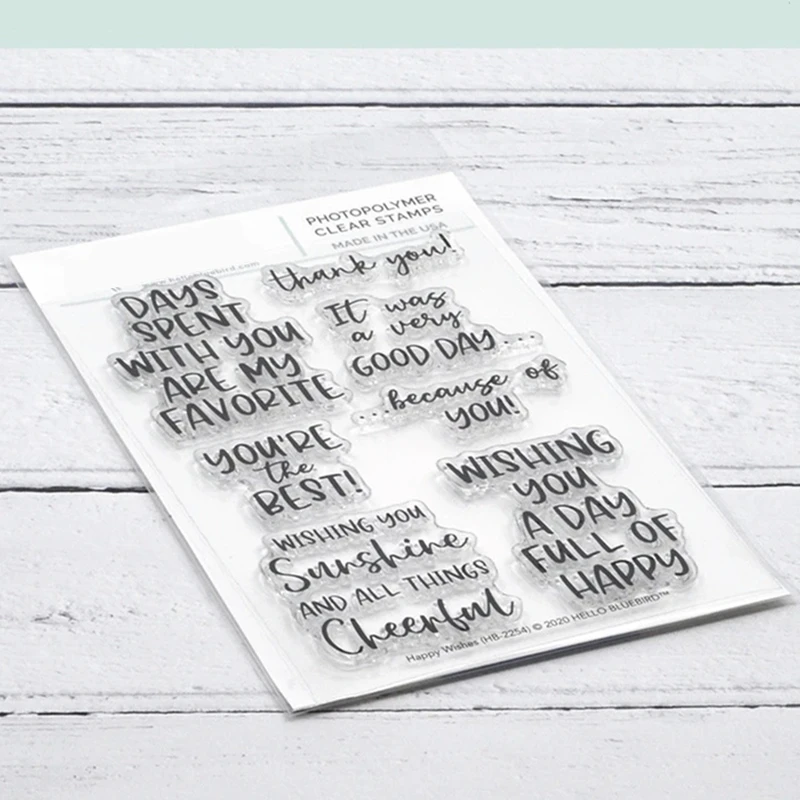 PHOTOPOLYMER
CLEAR STAMPS
MADE IN THE USA
www.hellobluebird.com
thank you!
DAYS
SPENT
WITH YOU
ARE MY
FAVORITE
It was
a very
GOOD DAY...
...because of
YOU!
YOU'RE
the
BEST!
WISHING
YOU
A DAY
FULL OF
HAPPY
WISHING YOU
Sunshine
AND ALL THINGS
Cheerful
Happy Wishes (HB-2254) © 2020 HELLO BLUEBIRD™